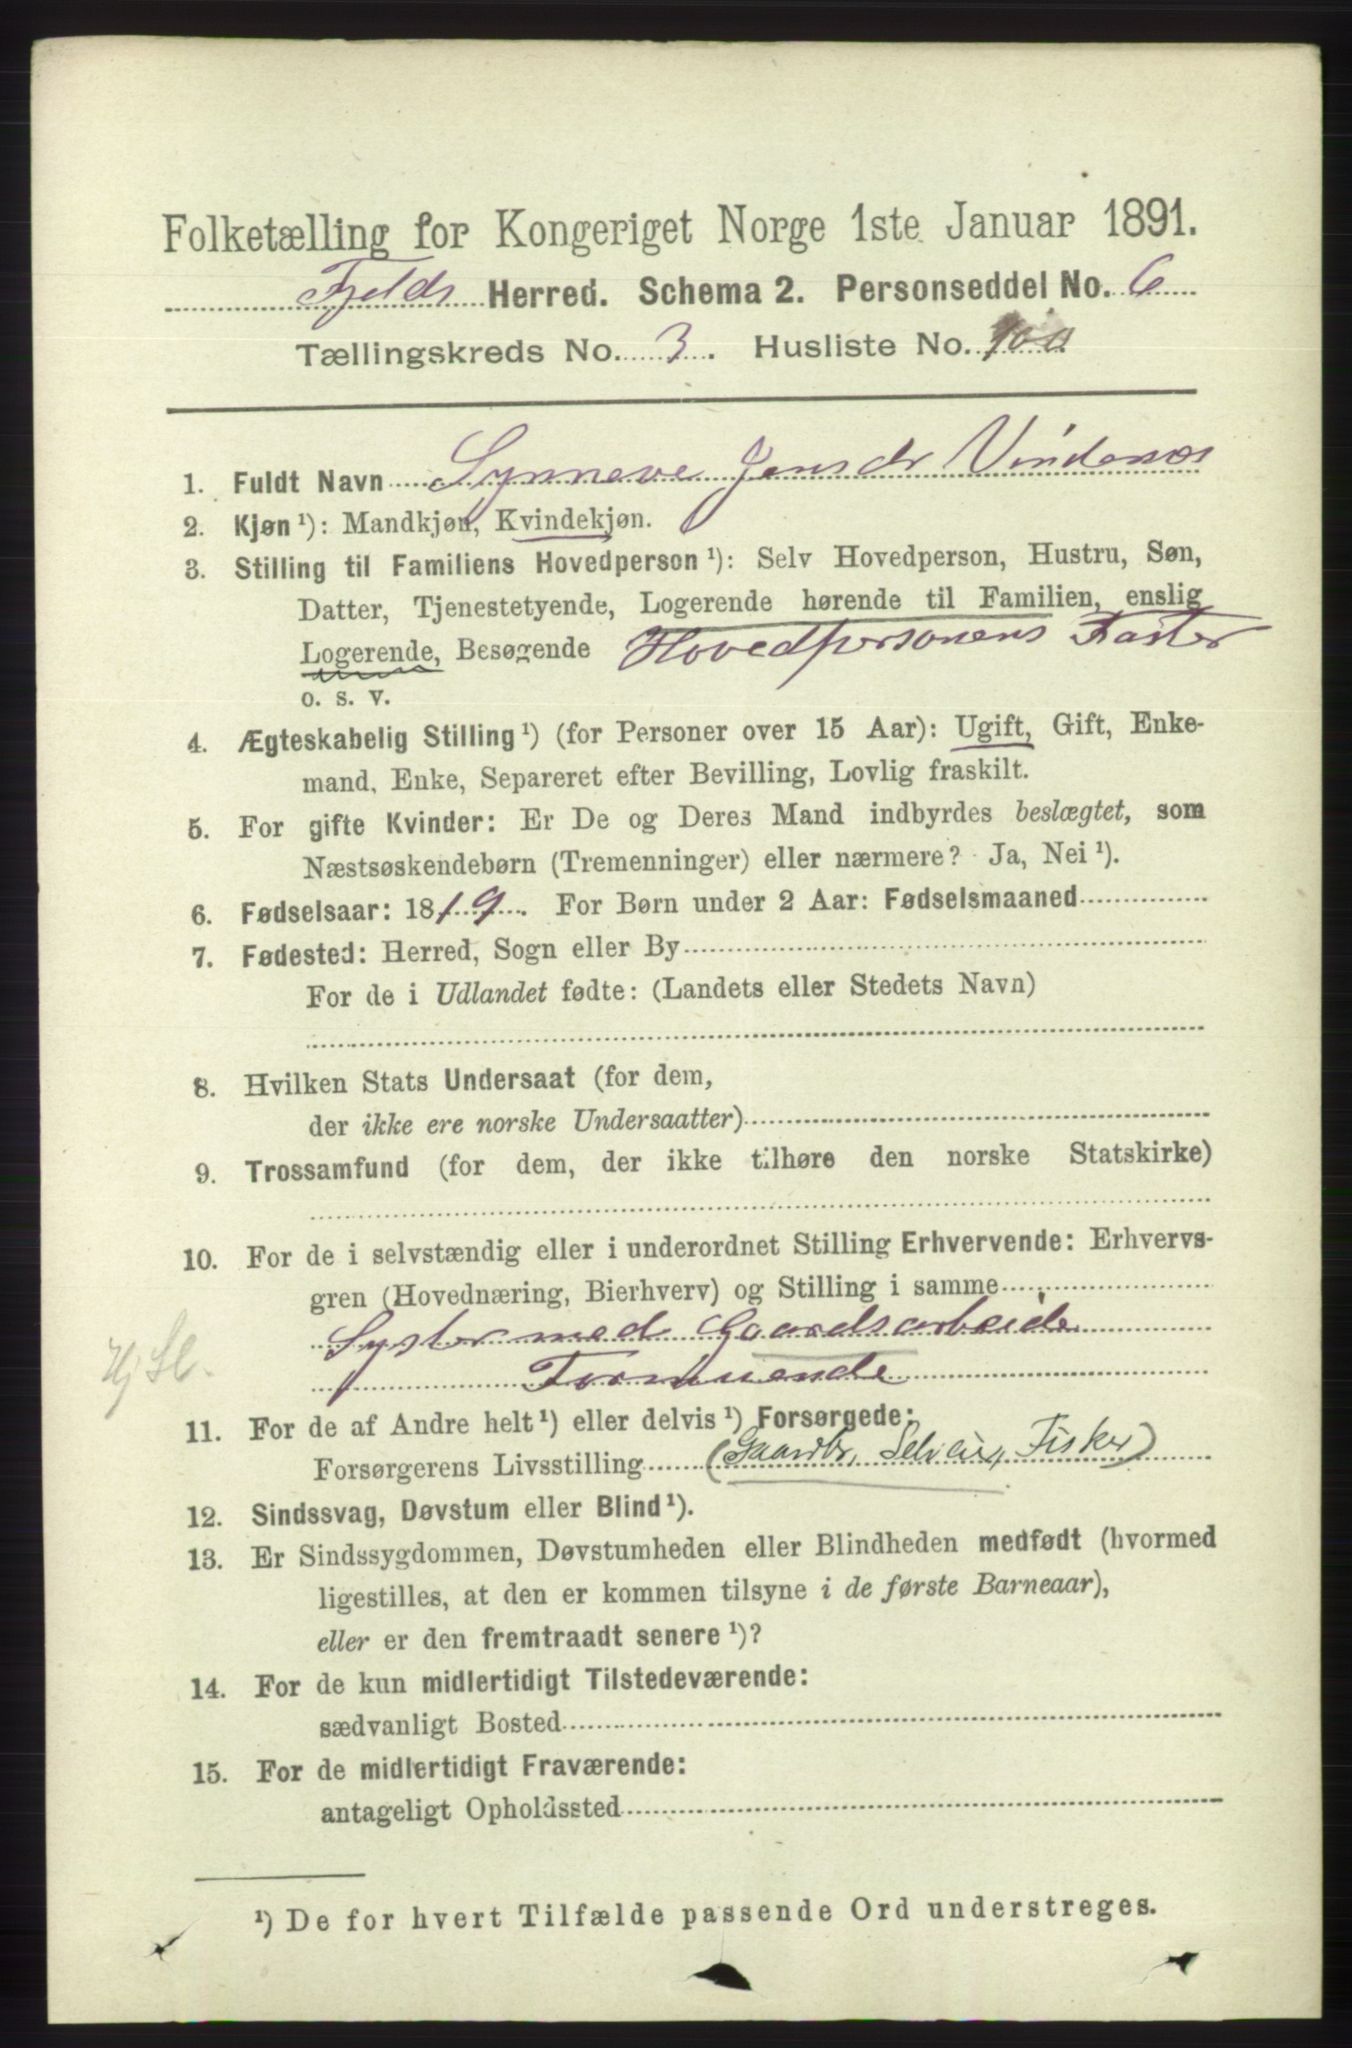 Folketælling for Kongeriget Norge 1ste Januar 1891.
Fjelds Herred. Schema 2. Personseddel No. 6
Tællingskreds No. 3. Husliste No. 100
1. Fuldt Navn Synneve Jensdr Vindenæs
2. Kjøn ¹): Mandkjøn, Kvindekjøn.
3. Stilling til Familiens Hovedperson ¹): Selv Hovedperson, Hustru, Søn,
Datter, Tjenestetyende, Logerende hørende til Familien, enslig
Logerende, Besøgende Hovedpersonens Faster
o. s. v.
4. Ægteskabelig Stilling ¹) (for Personer over 15 Aar): Ugift, Gift, Enke-
mand, Enke, Separeret efter Bevilling, Lovlig fraskilt.
5. For gifte Kvinder: Er De og Deres Mand indbyrdes beslægtet, som
Næstsøskendebørn (Tremenninger) eller nærmere? Ja, Nei ¹).
6. Fødselsaar: 1819. For Børn under 2 Aar: Fødselsmaaned
7. Fødested: Herred, Sogn eller By
For de i Udlandet fødte: (Landets eller Stedets Navn)
8. Hvilken Stats Undersaat (for dem,
der ikke ere norske Undersaatter)
9. Trossamfund (for dem, der ikke tilhøre den norske Statskirke)
10. For de i selvstændig eller i underordnet Stilling Erhvervende: Erhvervs-
gren (Hovednæring, Bierhverv) og Stilling i samme
Syster med Gaardsarbeide
11. For de af Andre helt ¹) eller delvis ¹) Forsørgede:
Forsørgerens Livsstilling (Gaardbr, Selveier, Fisker)
12. Sindssvag, Døvstum eller Blind ¹).
13. Er Sindssygdommen, Døvstumheden eller Blindheden medfødt (hvormed
ligestilles, at den er kommen tilsyne i de første Barneaar),
eller er den fremtraadt senere ¹)?
14. For de kun midlertidigt Tilstedeværende:
sædvanligt Bosted
15. For de midlertidigt Fraværende:
antageligt Opholdssted
¹) De for hvert Tilfælde passende Ord understreges.